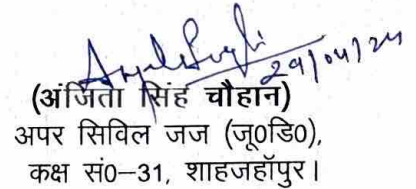 29/04/24
(अंजिता सिंह चौहान)
अपर सिविल जज (जू0डि0),
कक्ष सं0–31, शाहजहॉपुर।